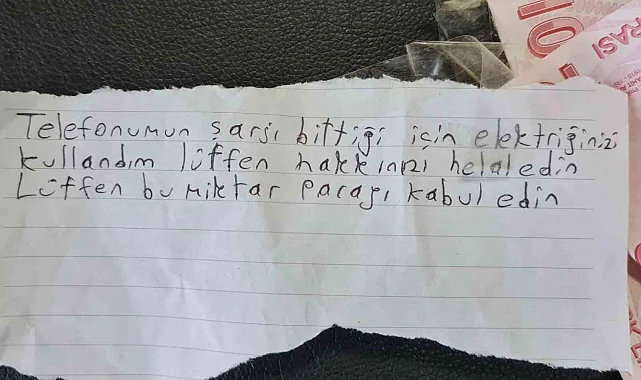 Telefonumun şarjı bittiği için elektriğinizi
kullandım lütfen hakkınızı helal edin
Lütfen bu miktar parayı kabul edin
10
RASI